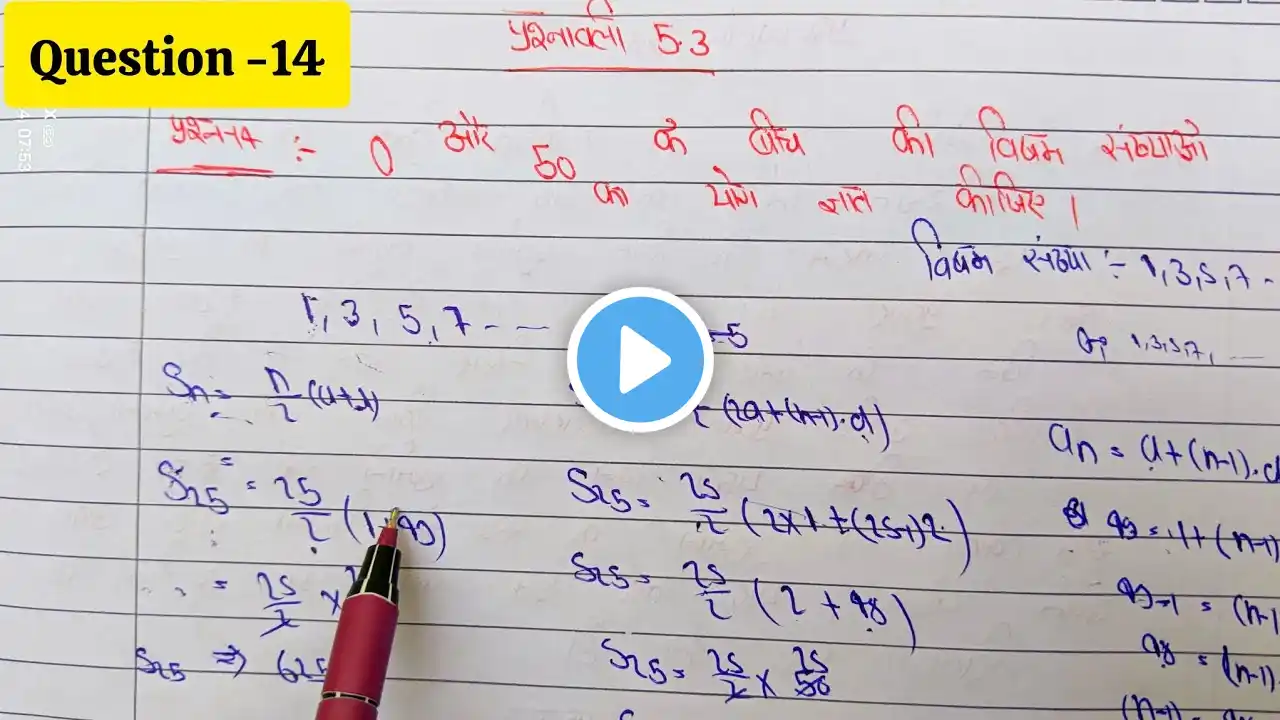 Question -14
प्रश्नावली 5.3
प्रश्न-14 :- 0 और 50 के बीच की विषम संख्याओं
का योग ज्ञात कीजिए।
विषम संख्या :- 1,3,5,7 -
1, 3, 5, 7 - - -
1,3,5,7, - - -
Sn = n/2 (a+l)
(2a+(n-1).d)
an = a+(n-1).d
S25 = 25/2 (1+49)
S25 = 25/2 (2×1+(25-1)2)
49 = 1+(n-1)
= 25/2 ×
S25 = 25/2 (2 + 48)
49-1 = (n-1)
S25 ⇒ 625
S25 = 25/2 × 50 25
48 = (n-1).
(n-1) =